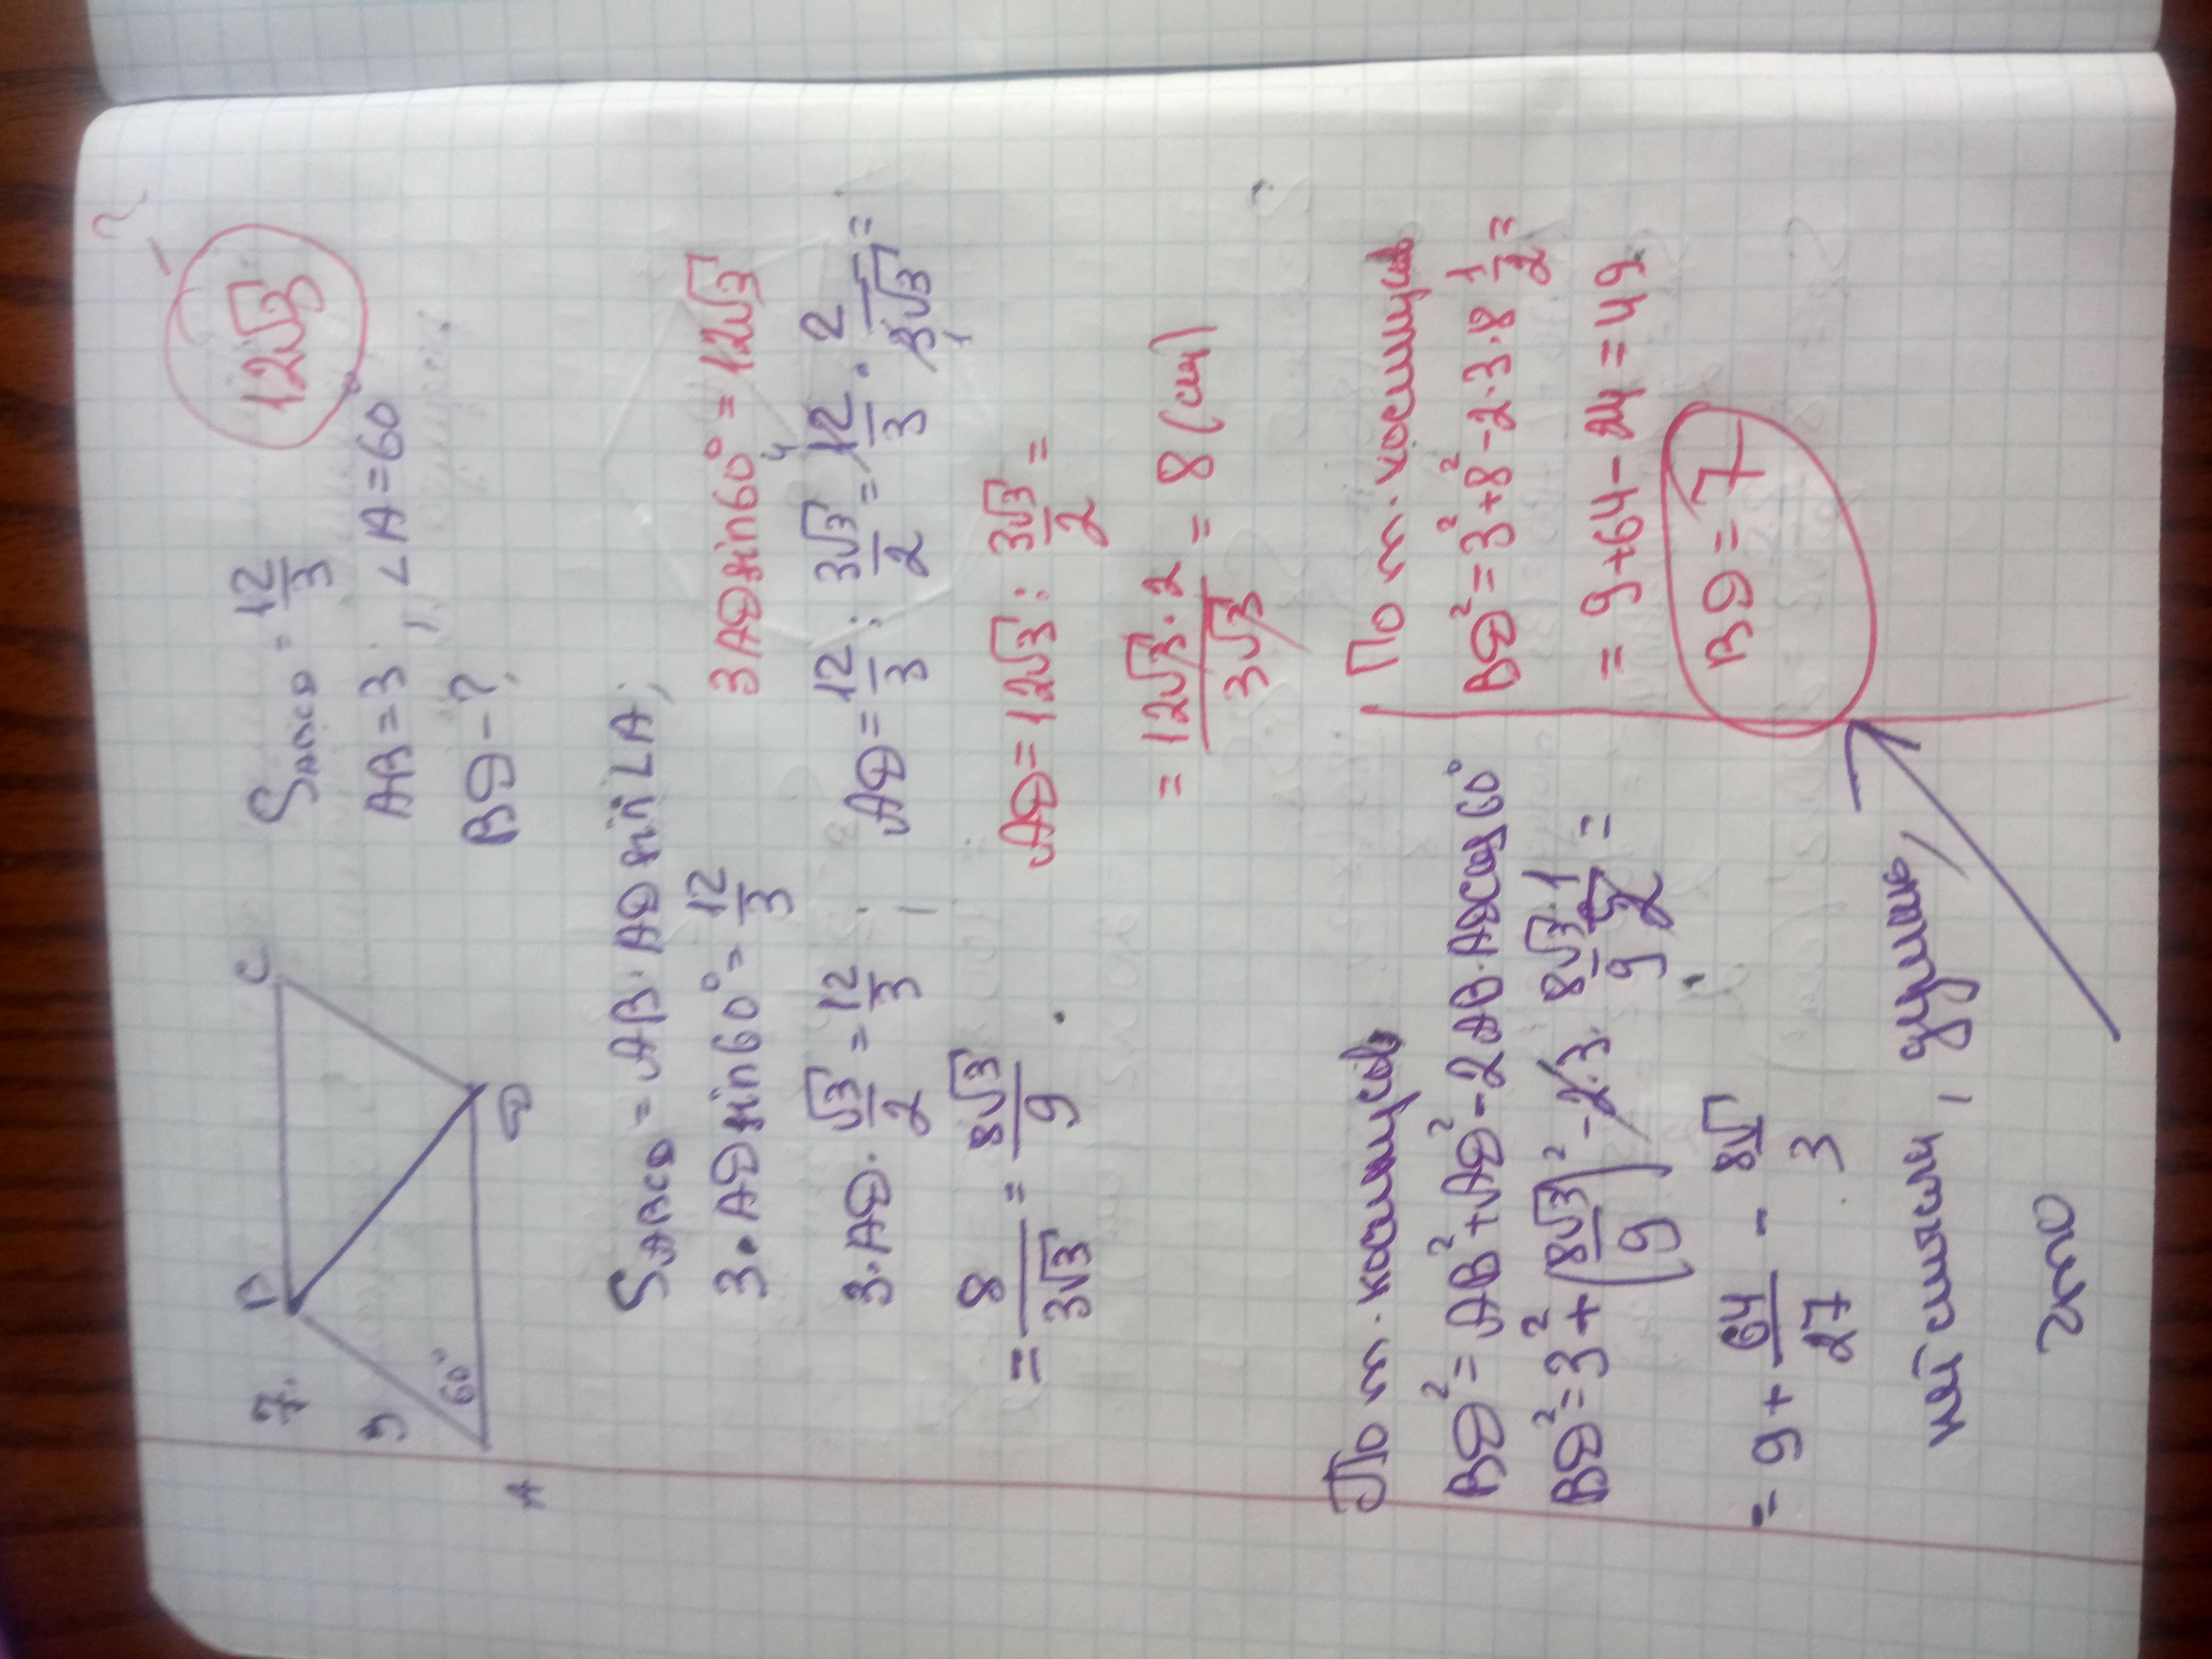 7.
B
C
3
60°
A
D
S ABCD = 12/3
12√3
?
AB = 3 ; ∠A = 60°
BD - ?
S ABCD = AB · AD sin ∠A ;
3 · AD sin 60° = 12/3
3 AD sin 60° = 12√3
3 · AD · √3/2 = 12/3 ;
AD = 12/3 : 3√3/2 = 12/3 · 2/3√3 =
4
1
= 8/3√3 = 8√3/9 .
AD = 12√3 : 3√3/2 =
= 12√3 · 2/3√3 = 8 (см)
По т. косинусов
BD² = AB² + AD² - 2 AB · AD cos 60°
BD² = 3² + (8√3/9)² - 2 · 3 · 8√3/9 · 1/2 =
= 9 + 64/27 - 8√/3
По т. косинусов
BD² = 3² + 8² - 2 · 3 · 8 1/2 =
= 9 + 64 - 24 = 49
BD = 7